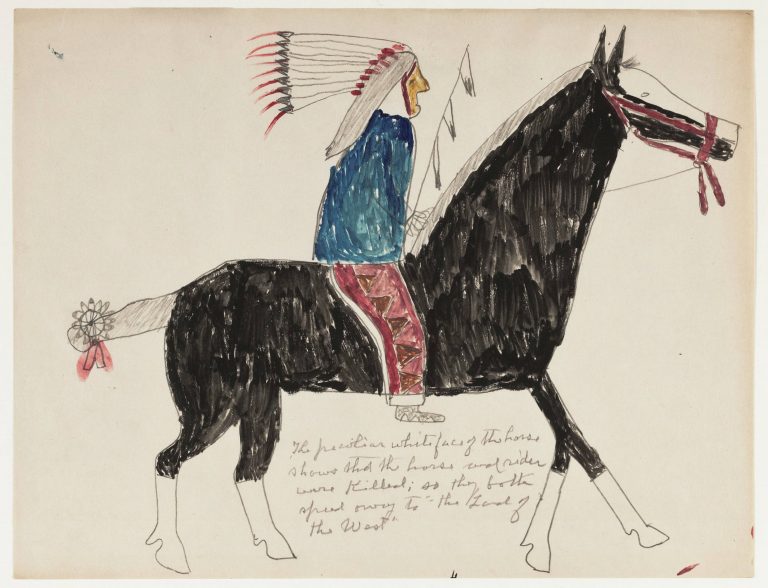 The peculiar white face of the horse
shows that the horse and rider
were killed; so they both
speed away to "the Land of
the West"